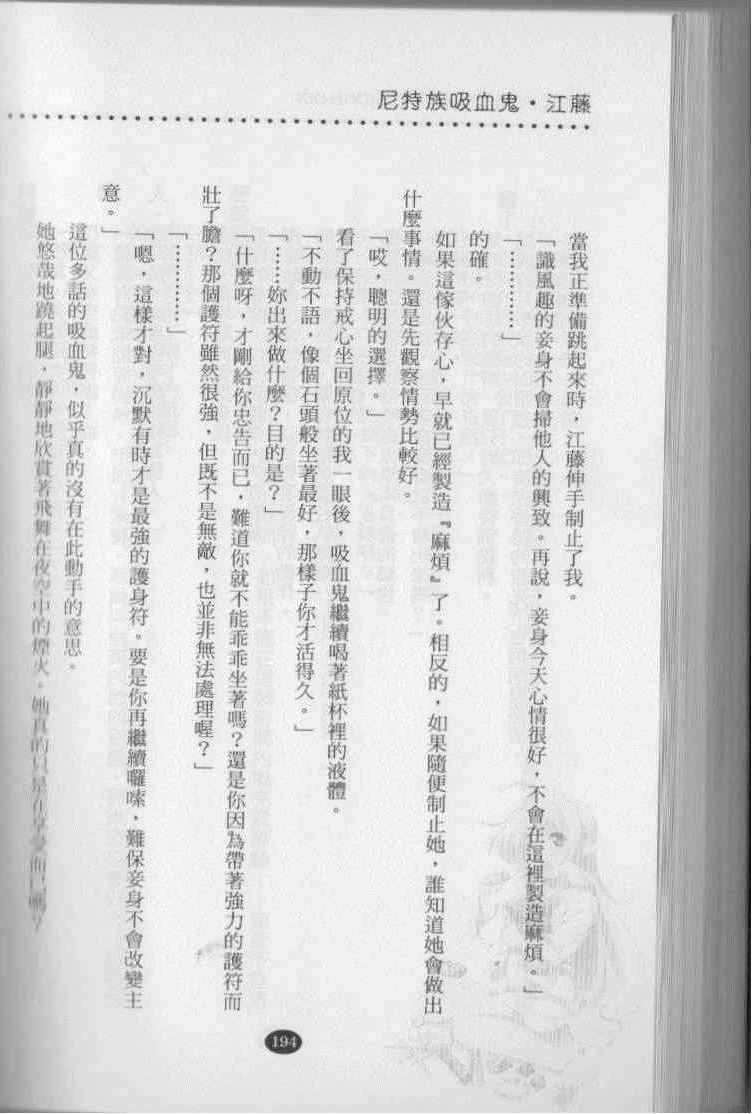 尼特族吸血鬼・江藤
當我正準備跳起來時，江藤伸手制止了我。
「識風趣的妾身不會掃他人的興致。再說，妾身今天心情很好，不會在這裡製造麻煩。」
「…………」
的確。
如果這傢伙存心，早就已經製造『麻煩』了。相反的，如果隨便制止她，誰知道她會做出
什麼事情。還是先觀察情勢比較好。
「哎，聰明的選擇。」
看了保持戒心坐回原位的我一眼後，吸血鬼繼續喝著紙杯裡的液體。
「不動不語，像個石頭般坐著最好，那樣子你才活得久。」
「……妳出來做什麼？目的是？」
「什麼呀，才剛給你忠告而已，難道你就不能乖乖坐著嗎？還是你因為帶著強力的護符而
壯了膽？那個護符雖然很強，但既不是無敵，也並非無法處理喔？」
「…………」
「嗯，這樣才對，沉默有時才是最強的護身符。要是你再繼續囉嗦，難保妾身不會改變主
意。」
這位多話的吸血鬼，似乎真的沒有在此動手的意思。
她悠哉地蹺起腿，靜靜地欣賞著飛舞在夜空中的煙火。她真的只是在享受而已啊？
194